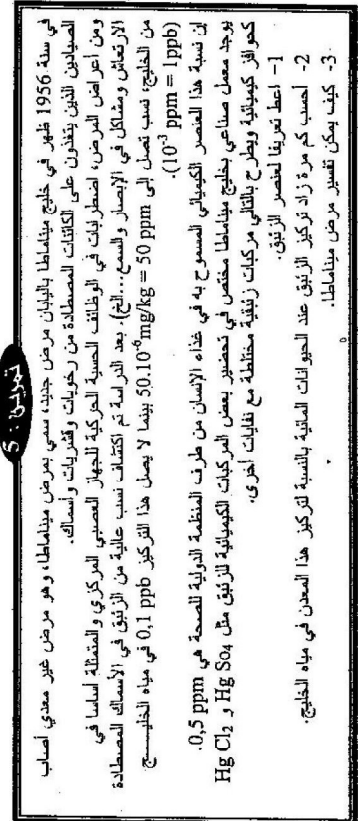 تمرين : 5
في سنة 1956 ظهر في خليج ميناماطا باليابان مرض جديد، سمي بمرض ميناماطا، وهو مرض غير معدي أصاب
الصيادين الذين يتغذون على الكائنات المصطادة من رخويات وقشريات وأسماك.
ومن أعراض المرض، اضطرابات في الوظائف الحسية الحركية للجهاز العصبي المركزي والمتمثلة أساسا في
الارتعاش ومشاكل في الإبصار والسمع...الخ). بعد الدراسة تم اكتشاف نسب عالية من الزئبق في الأسماك المصطادة
من الخليج، نسب تصل إلى 50.10⁻⁶mg/kg = 50 ppm بينما لا يصل هذا التركيز 0,1 ppb في مياه الخليـــج
(10⁻³ ppm = 1ppb).
إن نسبة هذا العنصر الكيميائي المسموح به في غذاء الإنسان من طرف المنظمة الدولية للصحة هي 0,5 ppm.
يوجد معمل صناعي بخليج ميناماطا مختص في تحضير بعض المركبات الكيميائية للزئبق مثل Hg So₄ و Hg Cl₂
كحوافز كيميائية ويطرح بالتالي مركبات زئبقية مختلطة مع نفايات أخرى.
1- اعط تعريفا لعنصر الزئبق.
2- احسب كم مرة زاد تركيز الزئبق عند الحيوانات المائية بالنسبة لتركيز هذا المعدن في مياه الخليج.
3- كيف يمكن تفسير مرض ميناماطا.